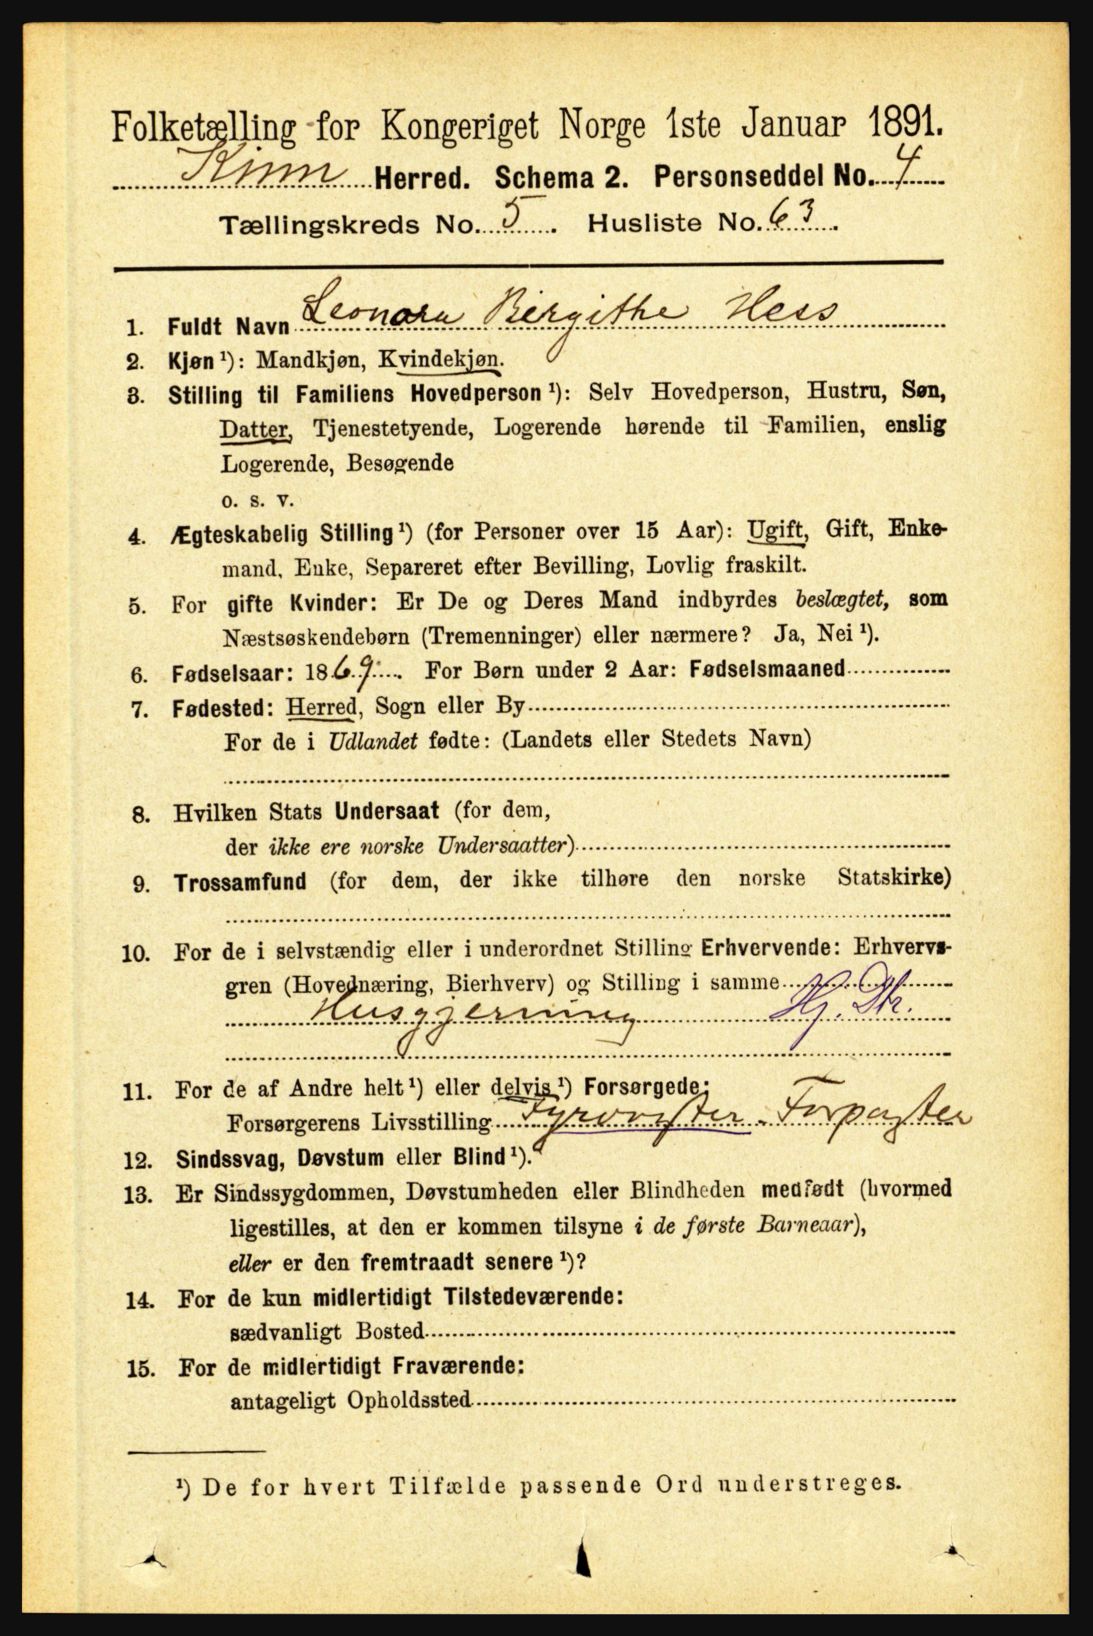 Folketælling for Kongeriget Norge 1ste Januar 1891.
Kinn Herred. Schema 2. Personseddel No. 4
Tællingskreds No. 5. Husliste No. 63.
1. Fuldt Navn Leonora Birgithe Hess
2. Kjøn ¹): Mandkjøn, Kvindekjøn.
3. Stilling til Familiens Hovedperson ¹): Selv Hovedperson, Hustru, Søn,
Datter, Tjenestetyende, Logerende hørende til Familien, enslig
Logerende, Besøgende
o. s. v.
4. Ægteskabelig Stilling ¹) (for Personer over 15 Aar): Ugift, Gift, Enke-
mand, Enke, Separeret efter Bevilling, Lovlig fraskilt.
5. For gifte Kvinder: Er De og Deres Mand indbyrdes beslægtet, som
Næstsøskendebørn (Tremenninger) eller nærmere? Ja, Nei ¹).
6. Fødselsaar: 1869. For Børn under 2 Aar: Fødselsmaaned
7. Fødested: Herred, Sogn eller By
For de i Udlandet fødte: (Landets eller Stedets Navn)
8. Hvilken Stats Undersaat (for dem,
der ikke ere norske Undersaatter)
9. Trossamfund (for dem, der ikke tilhøre den norske Statskirke)
10. For de i selvstændig eller i underordnet Stilling Erhvervende: Erhvervs-
gren (Hovednæring, Bierhverv) og Stilling i samme
Husgjerning Hj. Dtr.
11. For de af Andre helt ¹) eller delvis ¹) Forsørgede:
Forsørgerens Livsstilling Fyrvogter - Forpagter
12. Sindssvag, Døvstum eller Blind ¹).
13. Er Sindssygdommen, Døvstumheden eller Blindheden medfødt (hvormed
ligestilles, at den er kommen tilsyne i de første Barneaar),
eller er den fremtraadt senere ¹)?
14. For de kun midlertidigt Tilstedeværende:
sædvanligt Bosted
15. For de midlertidigt Fraværende:
antageligt Opholdssted
¹) De for hvert Tilfælde passende Ord understreges.